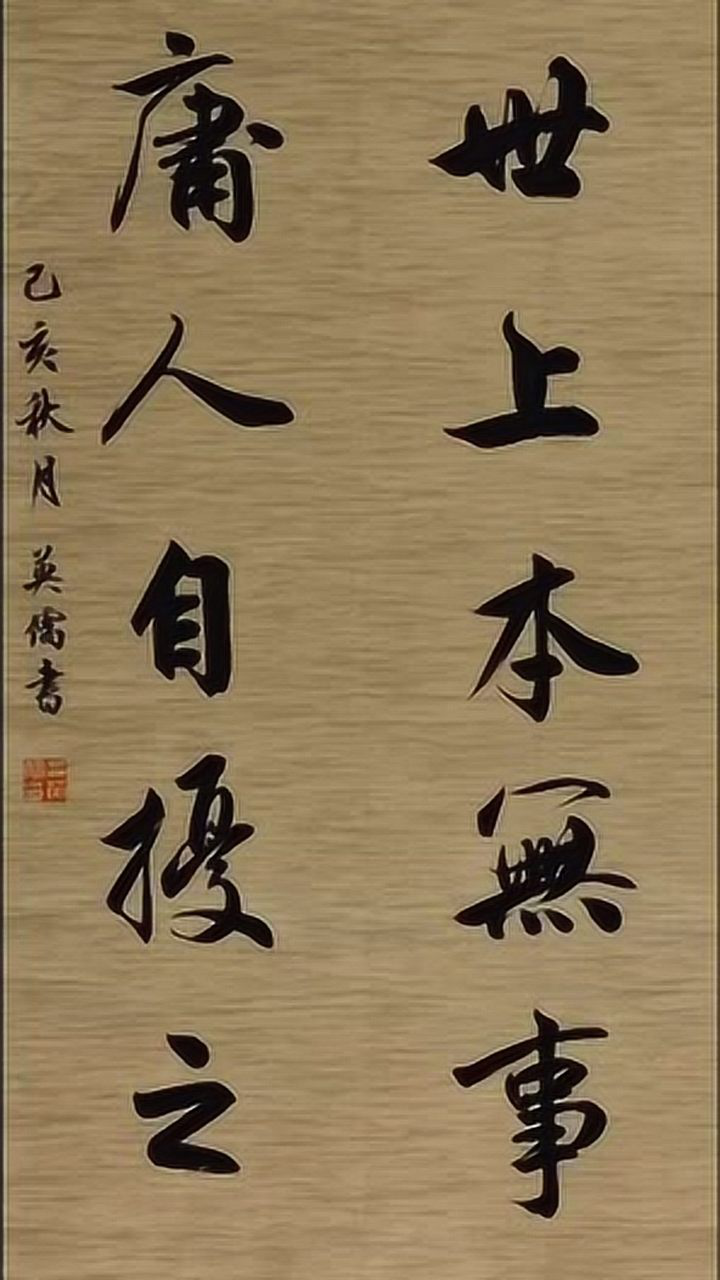 世上本無事
庸人自擾之
己亥秋月 英儒書